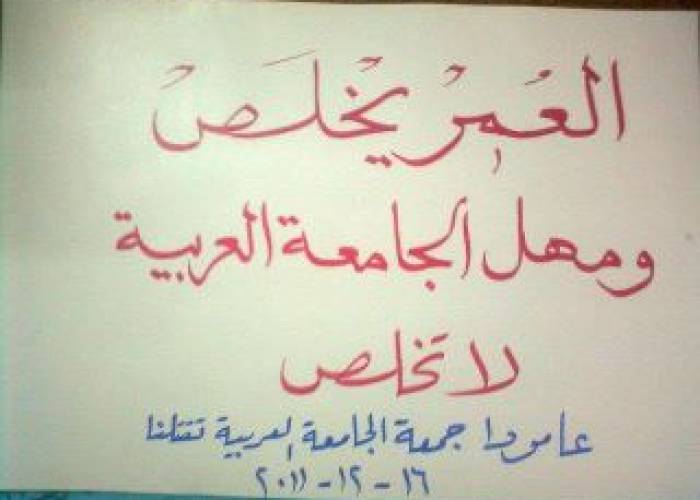 العُمِرْ يخْلَصْ
ومهل الجامعة العربية
لا تخلص
عامودا جمعة الجامعة العربية تقتلنا
١٦ - ١٢ - ٢٠١١